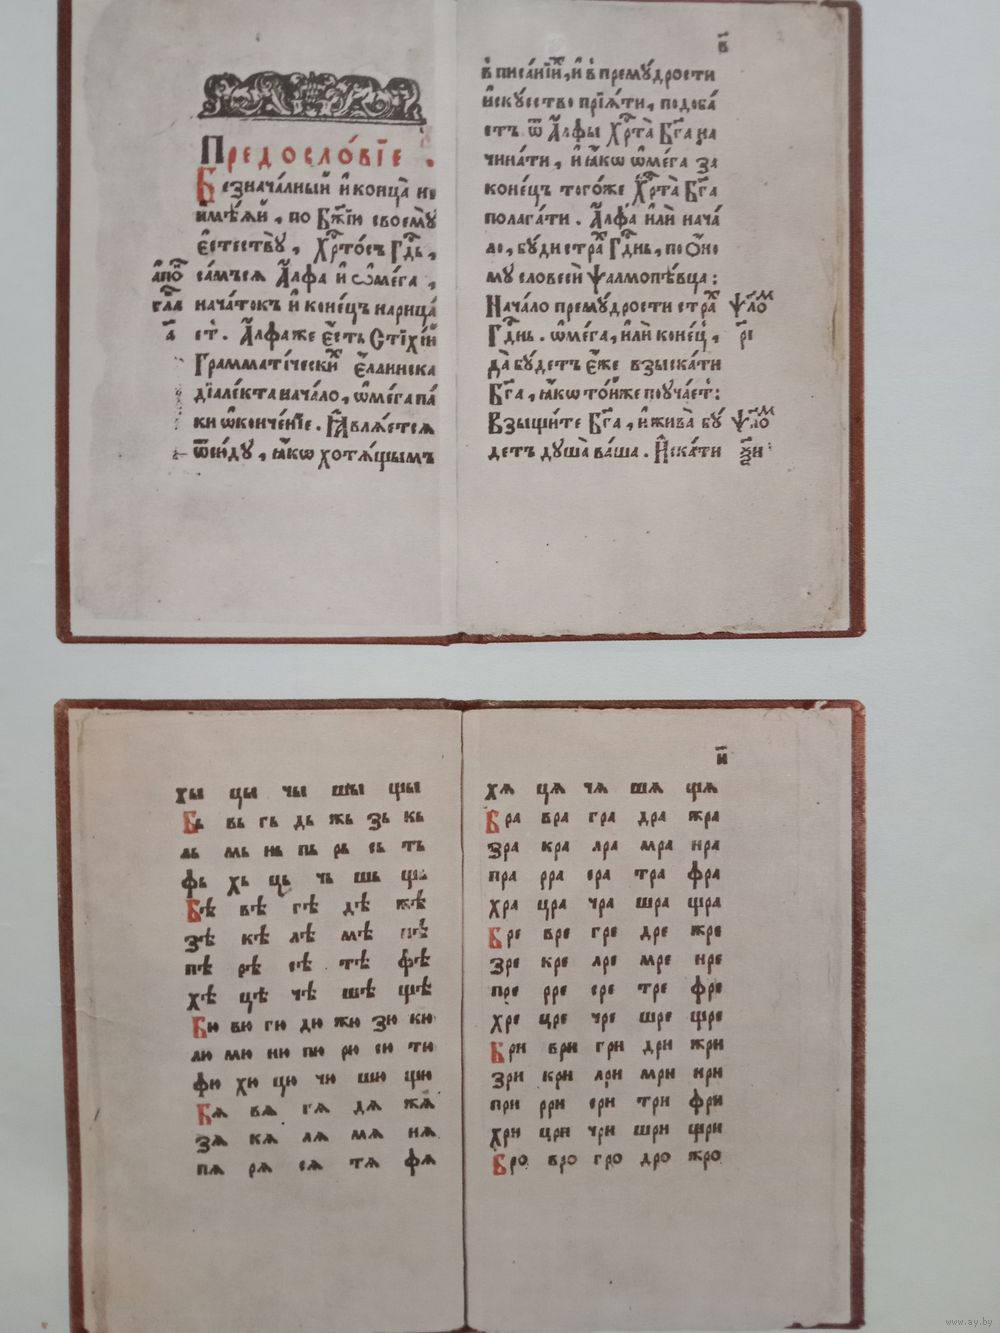 Предослѡ́вїе .
Безнача́лный и҆ конца̀ не
и҆мѣ́ѧй , по Бж҃їю своемꙋ̀
є҆стествꙋ̀ , Хрⷭ҇то́съ Гдⷭ҇ь ,
са́мъсѧ А҆́лфа и҆ ѡ҆ме́га ,
нача́токъ и҆ коне́цъ нарица́
ет . А҆́лфа же є҆́сть Стїхі́й
Грамматі́ческиⷯ є҆́ллинска
дїале́кта нача́ло , ѡ҆ме́га па́
ки ѡ҆конче́нїе . Ꙗ҆влѧ́етсѧ
ѿсю́дꙋ , ꙗ҆́кѡ хотѧ́щымъ
а҆по
гла
а҃
в҃
в писа́нїиⷯ , и҆ в премꙋ́дрости
и҆скꙋсство прїѧ́ти , подоба́
етъ ѿ А҆́лфы Хрⷭ҇та̀ Бг҃а на
чина́ти , и҆ ꙗ҆́кѡ ѡ҆ме́га за
коне́цъ того́же Хрⷭ҇та̀ Бг҃а
полага́ти . А҆́лфа и҆лѝ нача́
ло , бꙋ́ди страⷯ Гдⷭ҇нь , по Ѻ҆но
мꙋ словесѝ Ѱалмопѣ́вца :
Нача́ло премꙋ́дрости страⷯ
Гдⷭ҇нь . ѡ҆ме́га , и҆лѝ коне́ц ,
да̀ бꙋ́детъ є҆́же взыска́ти
Бг҃а , ꙗ҆́кѡ то́йже поꙋча́ет :
Взыщи́те Бг҃а , и҆ жива̀ бꙋ́
детъ дꙋша̀ ва́ша . И҆ска́ти
Ѱалоⷨ
р҃і
Ѱалоⷨ
ѯ҃и
хы цы чы шы щы
Бь вь гь дь жь зь кь
ль мь нь пь рь сь ть
фь хь ць чь шь щь
Бѣ вѣ гѣ дѣ жѣ
зѣ кѣ лѣ мѣ нѣ
пѣ рѣ сѣ тѣ фѣ
хѣ цѣ чѣ шѣ щѣ
Бю вю гю дю жю зю кю
лю мю ню пю рю сю тю
фю хю цю чю шю щю
Бѧ вѧ гѧ дѧ жѧ
зѧ кѧ лѧ мѧ нѧ
пѧ рѧ сѧ тѧ фѧ
и҃
хѧ цѧ чѧ шѧ щѧ
Бра вра гра дра жра
зра кра лра мра нра
пра рра сра тра фра
хра цра чра шра щра
Бре вре гре дре жре
зре кре лре мре нре
пре рре сре тре фре
хре цре чре шре щре
Бри ври гри дри жри
зри кри лри мри нри
при рри сри три фри
хри цри чри шри щри
Бро вро гро дро жро
www.ay.by